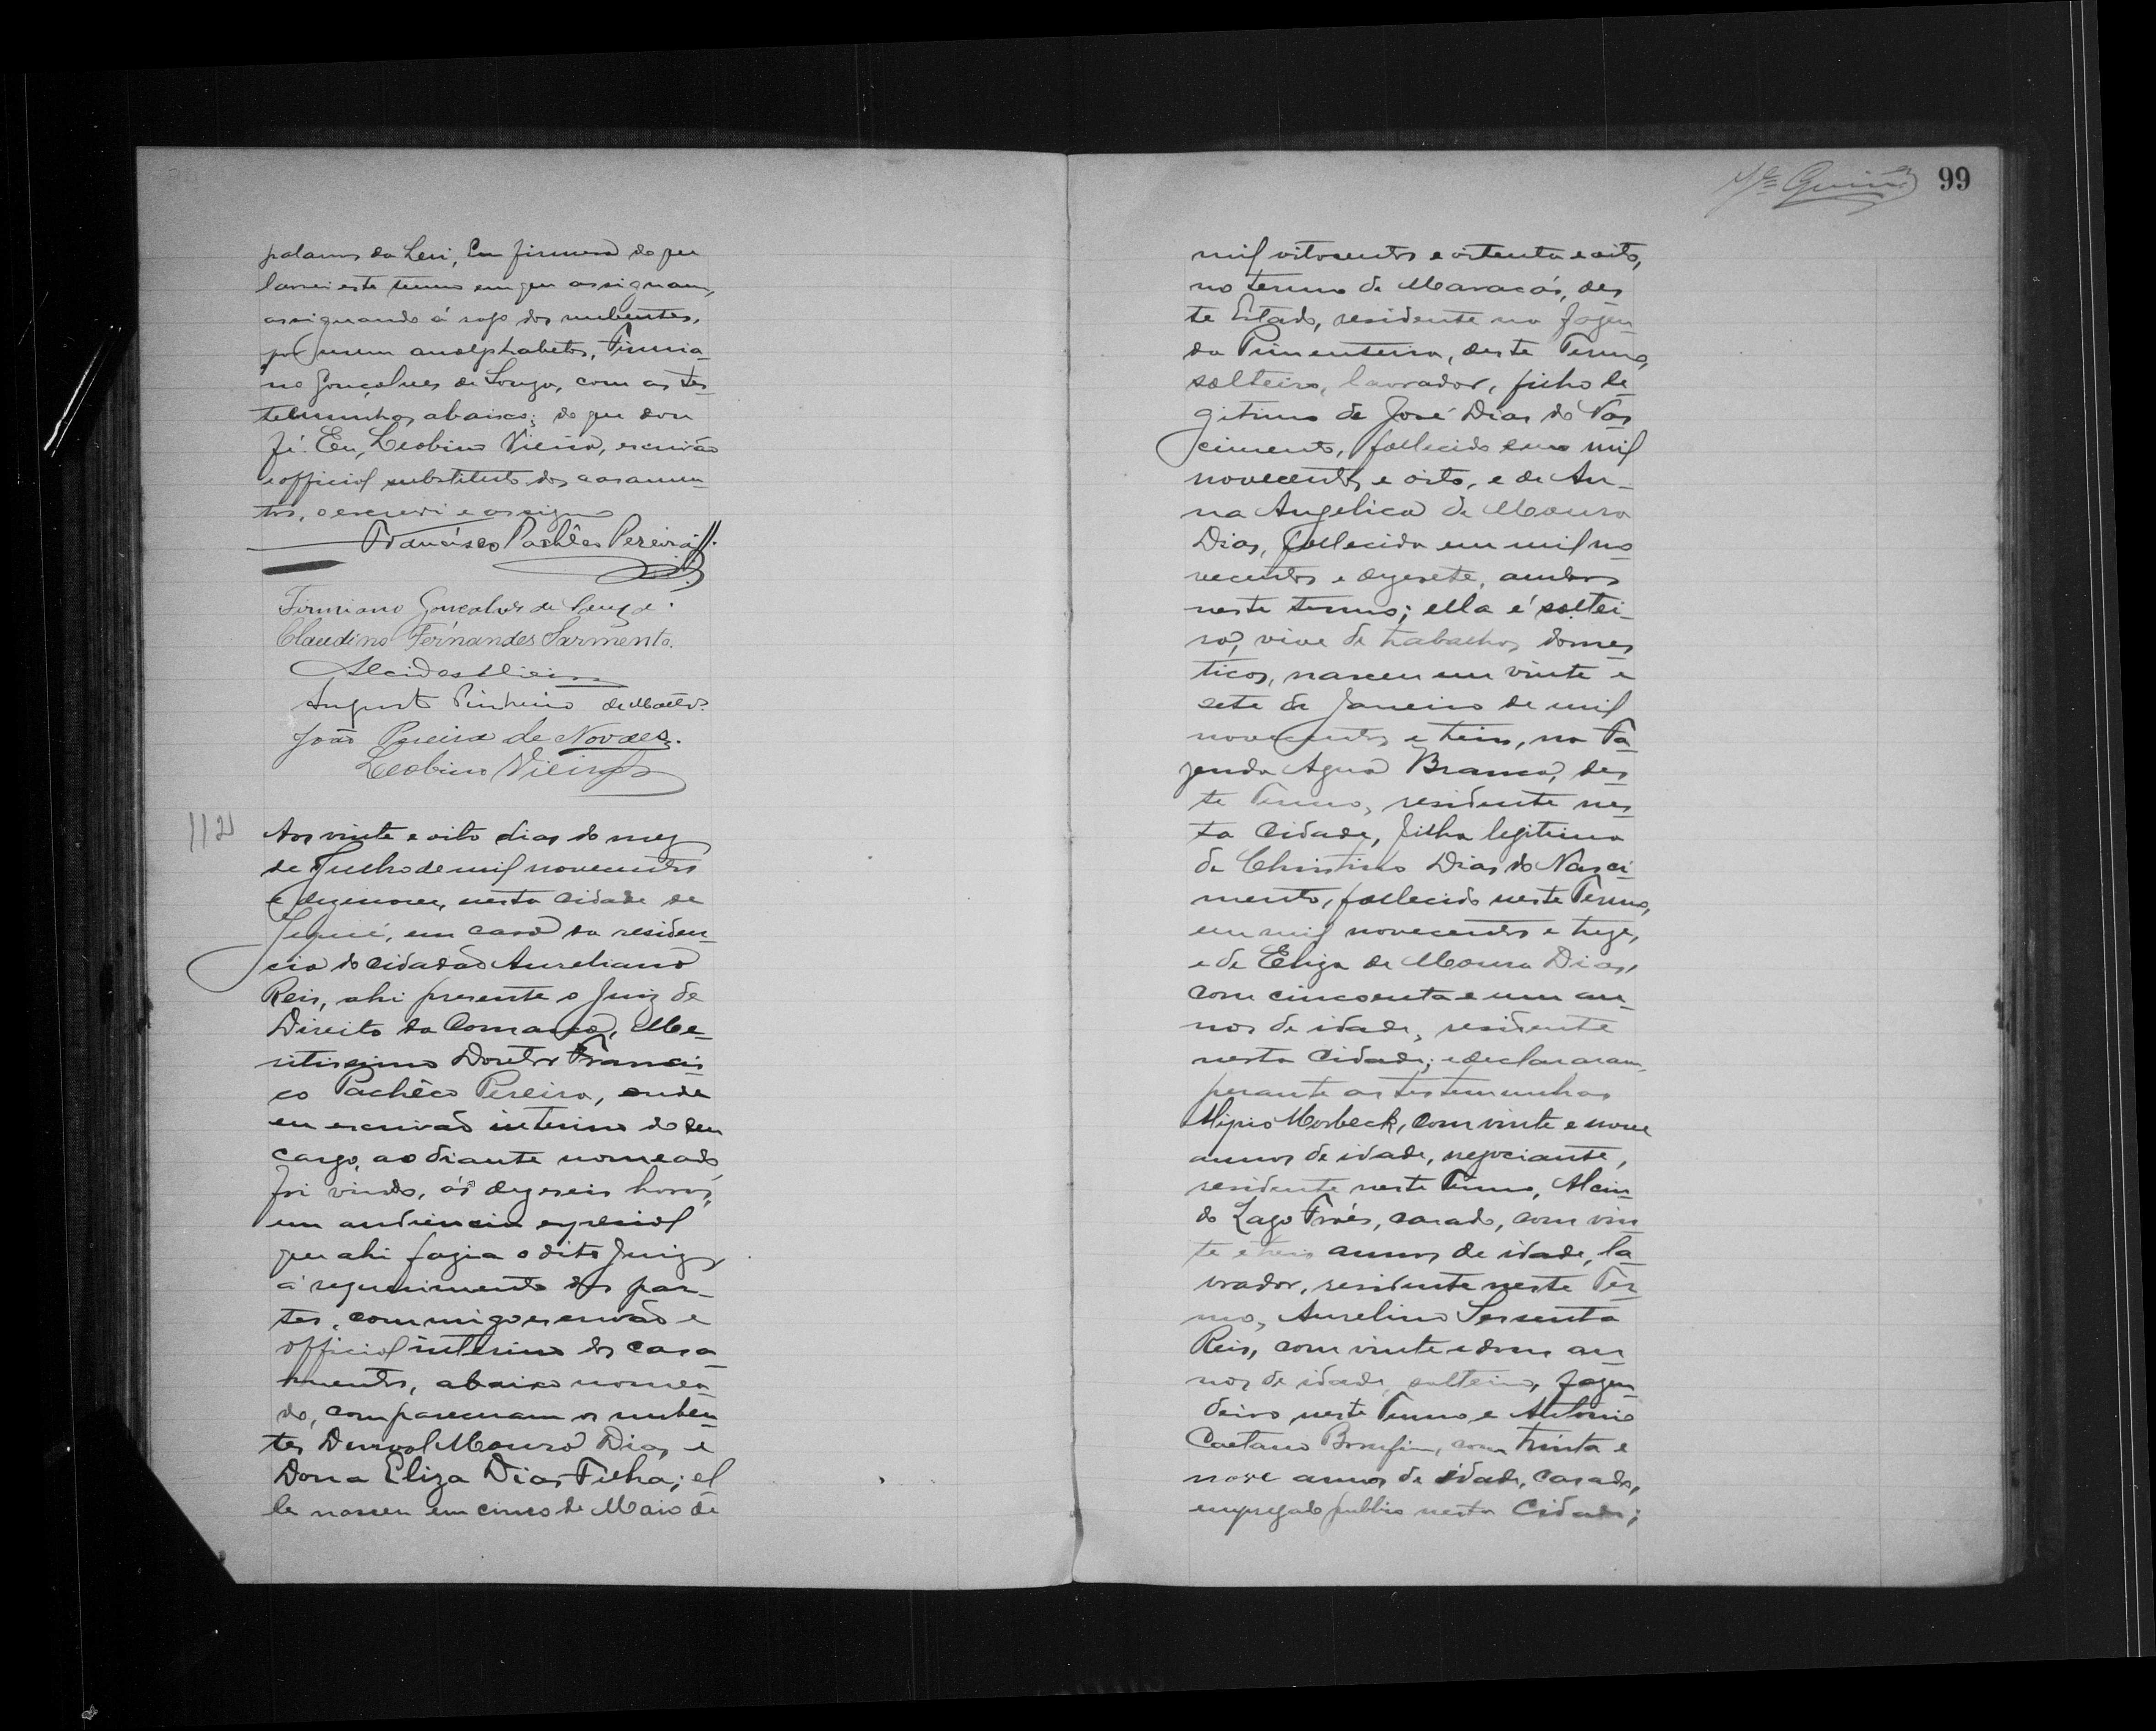 palavras da Lei, Em firmeza do que
lavrei este termo em que assignam,
assignando á rogo dos nubentes,
por serem analphabetos, Firmia-
no Gonçalves de Souza, com as tes
temunhas abaixo; do que dou
fé. Eu, Leobino Vieira, escrivão
e official substituto dos casamen-
tos, o escrevi e assigno
Francisco Pachêco Pereira
Firmiano Gonçalves de Souza.
Claudino Fernandes Sarmento.
Alcides Vieira
Augusto Pinheiro de Mattos.
João Pereira de Novaes.
Leobino Vieira
112
Aos vinte e oito dias do mez
de Julho de mil novecentos
e dezenove, nesta Cidade de
Jequié, em casa da residen-
cia do Cidadão Aureliano
Reis, ahi presente o Juiz de
Direito da Comarca, Me-
ritissimo Doutor Francis
co Pachêco Pereira, onde
eu escrivão interino do seu
cargo, ao diante nomeado,
foi vindo, ás dezeseis horas,
em audiencia especial
que ahi fazia o dito Juiz
á requerimento das par-
tes, commigo escrivão e
official interino dos casa-
mentos, abaixo nomea-
do, compareceram os nuben-
tes Durval Moura Dias e
Dona Eliza Dias Filha; el
le nasceu em cinco de Maio de
99
mil oitocentos e oitenta e oito,
no termo de Maracás, des
te Estado, residente na fazen-
da Pimenteira, deste Termo,
solteiro, lavrador, filho le
gitimo de José Dias do Nas
cimento, fallecido em mil
novecentos e oito, e de An-
na Angelica de Moura
Dias, fallecida em mil no
vecentos e dezesete, ambos
neste termo; ella é soltei-
ra, vive de trabalhos domes
ticos, nasceu em vinte e
sete de Janeiro de mil
novecentos e tres, na Fa
zenda Agua Branca, des
te Termo, residente nes
ta Cidade, filha legitima
de Christino Dias do Nasci-
mento, fallecido neste Termo,
em mil novecentos e treze,
e de Eliza de Moura Dias,
com cincoenta e um an-
nos de idade, residente
nesta Cidade; e declararam,
perante as testemunhas
Alipio Morbeck, com vinte e nove
annos de idade, negociante,
residente neste Termo, Alcin-
do Lago Fróes, casado, com vin
te e tres annos de idade, la
vrador, residente neste Ter
mo, Aurelino Sessenta
Reis, com vinte e dous an-
nos de idade, solteiro, fazen-
deiro neste Termo e Antonio
Caetano Bomfim, com trinta e
nove annos de idade, casado,
empregado publico nesta Cidade;